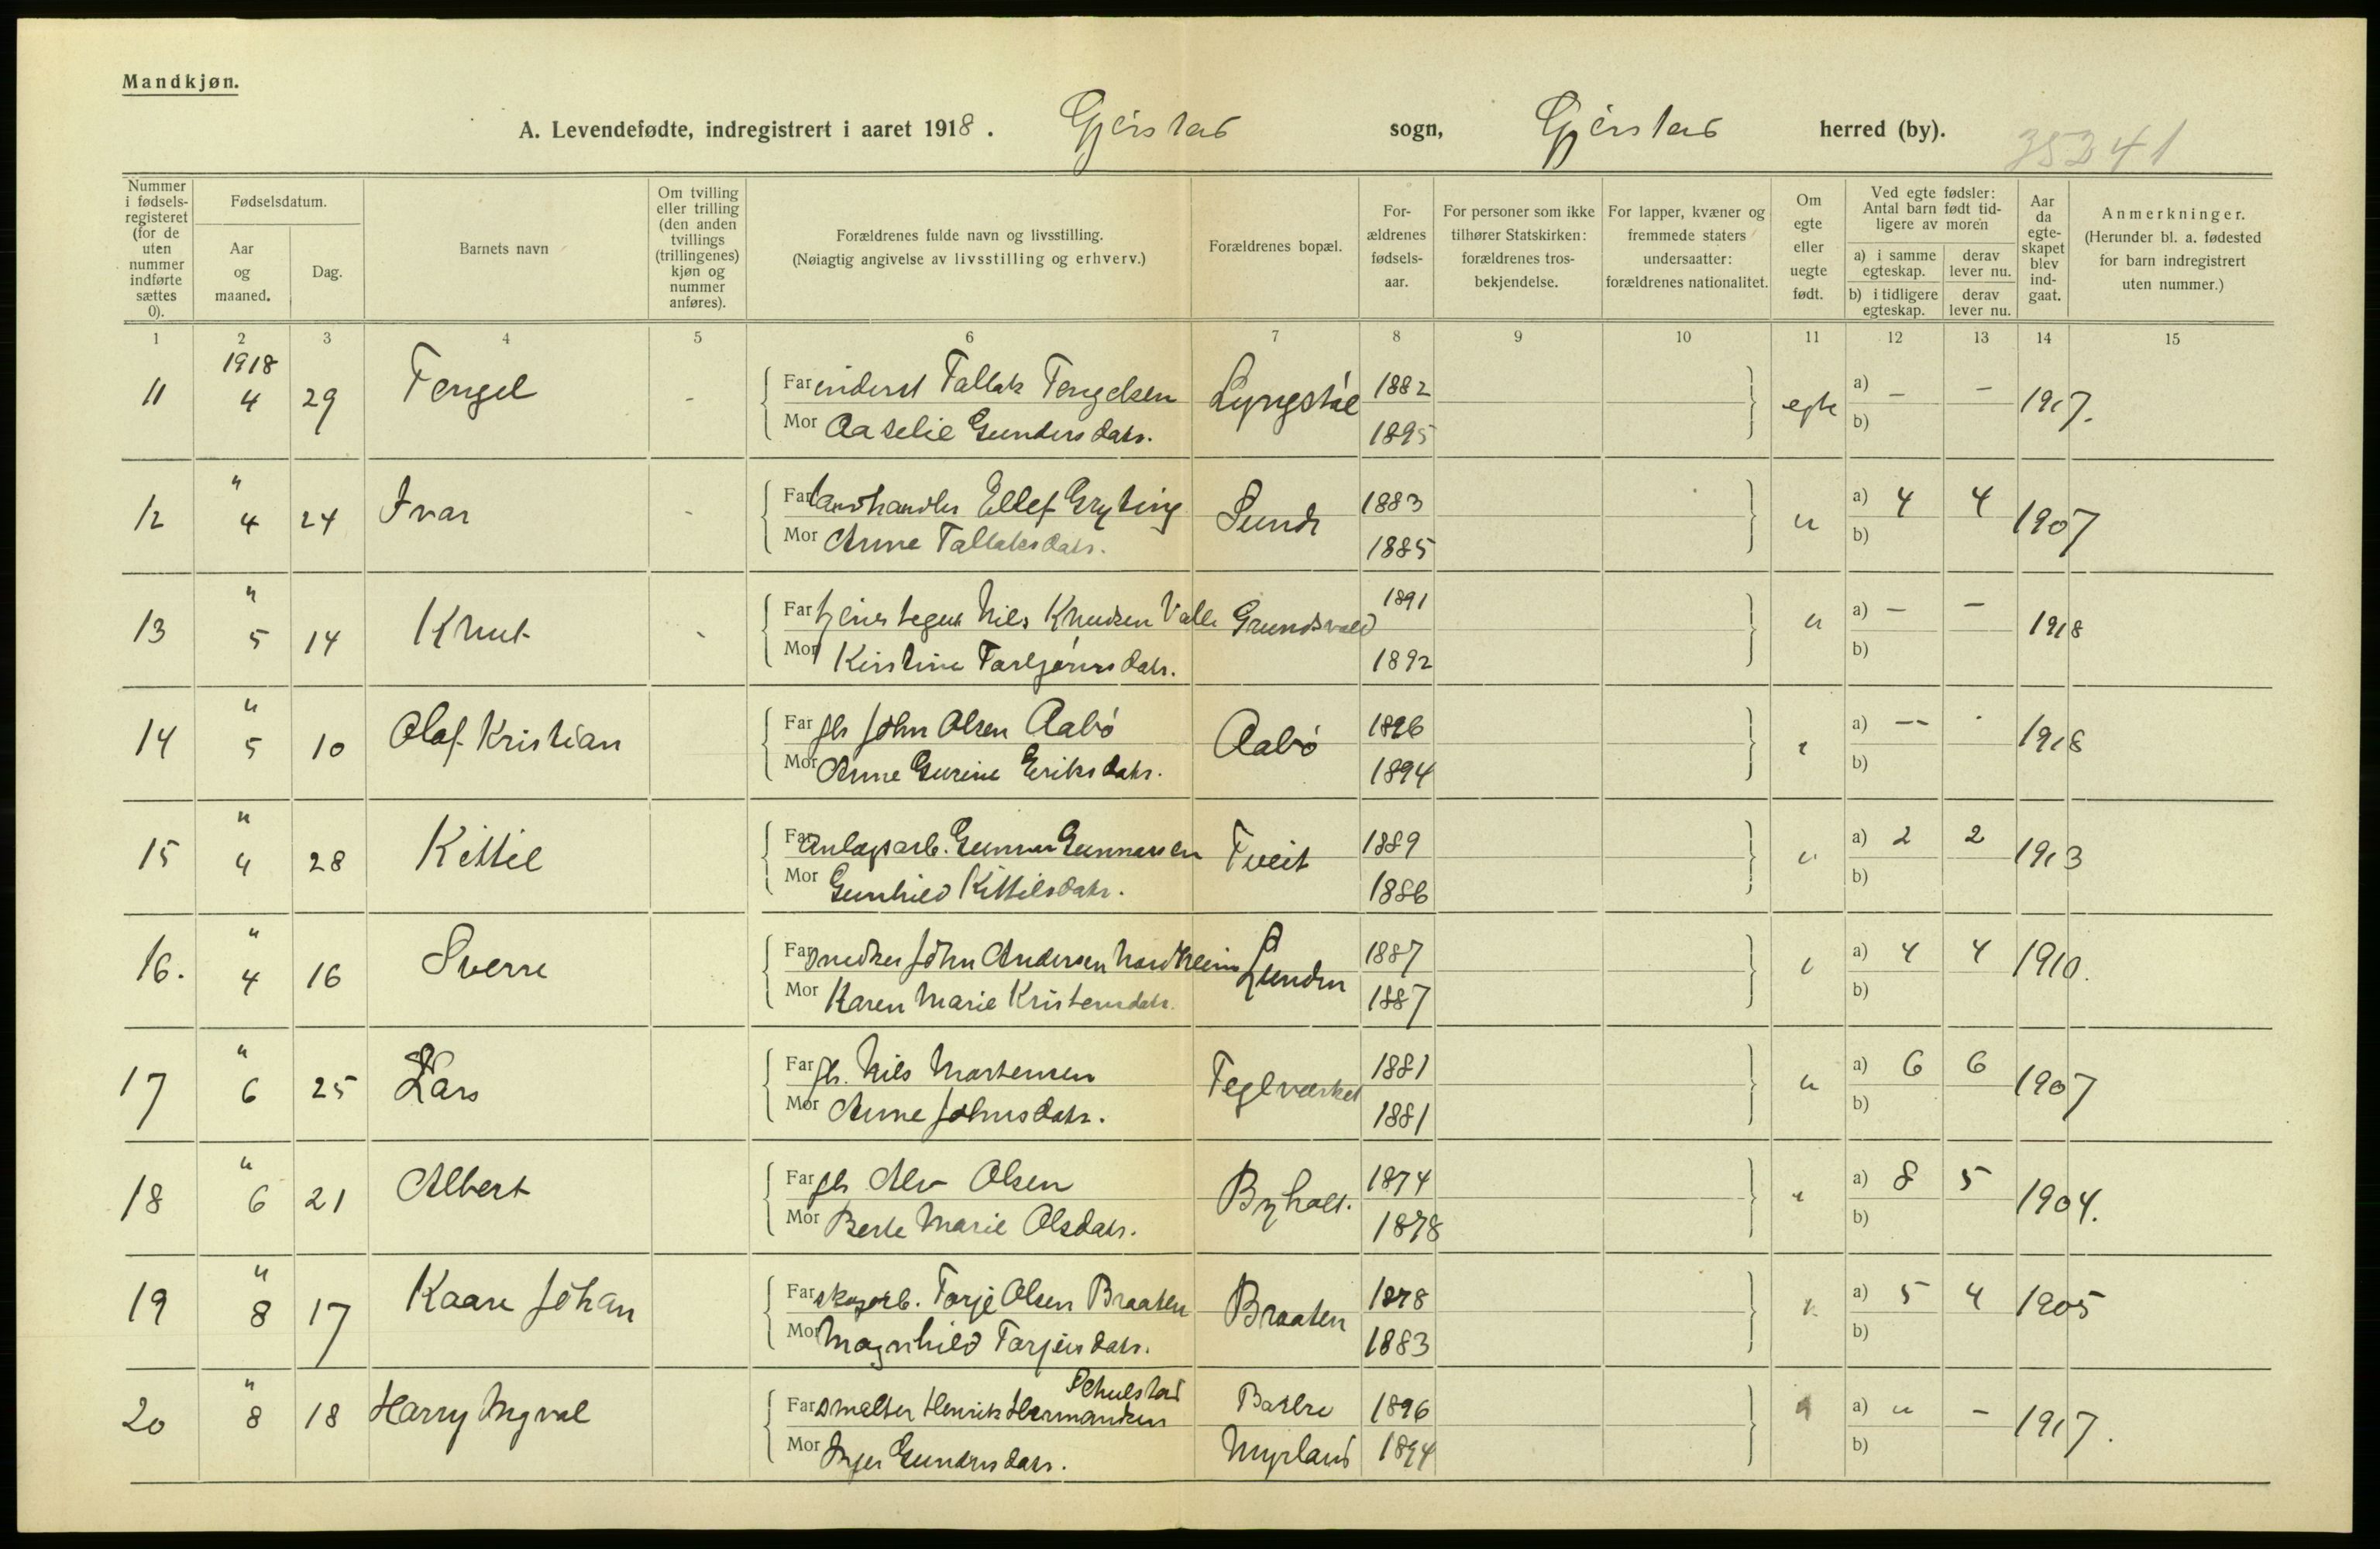 Mandkjøn.
A. Levendefødte, indregistrert i aaret 1918. Gjerstad sogn, Gjerstad herred (by). 35241
Nummer i fødselsregisteret (for de uten nummer indførte sættes 0).
Fødselsdatum.
Aar og maaned.
Dag.
Barnets navn
Om tvilling eller trilling (den anden tvillings (trillingenes) kjøn og nummer anføres).
Forældrenes fulde navn og livsstilling.
(Nøiagtig angivelse av livsstilling og erhverv.)
Forældrenes bopæl.
Forældrenes fødselsaar.
For personer som ikke tilhører Statskirken: forældrenes trosbekjendelse.
For lapper, kvæner og fremmede staters undersaatter: forældrenes nationalitet.
Om egte eller uegte født.
Ved egte fødsler: Antal barn født tidligere av moren
a) i samme egteskap.
derav lever nu.
b) i tidligere egteskap.
derav lever nu.
Aar da egteskapet blev indgaat.
Anmerkninger.
(Herunder bl. a. fødested for barn indregistrert uten nummer.)
1 2 3 4 5 6 7 8 9 10 11 12 13 14 15
1918
11 4 29 Tengel - Far inderst Tallak Tengelsen Lyngstøl 1882 egte a) - - 1917.
Mor Aaselie Gundersdatr. 1895 b)
12 " 4 24 Ivar - Far landhandler Ellef Gryting Sundr 1883 " a) 4 4 1907
Mor Anne Tallaksdatr. 1885 b)
13 " 5 14 Knut - Far Nils Knudsen Valle Grundsvald 1891 " a) - - 1918
Mor Kirstine Tarbjørnsdatr. 1892 b)
14 " 5 10 Olaf Kristian Far gb John Olsen Aabø Aabø 1896 " a) -- - 1918
Mor Anne Gurine Eriksdatr. 1894 b)
15 " 4 28 Kittil Far Anlægsarb. Gunnar Gunnarsen Tveit 1889 " a) 2 2 1913
Mor Gunhild Kittilsdatr. 1886 b)
16. " 4 16 Sverre Far snedker John Andersen Nordheim Lunden 1887 " a) 4 4 1910.
Mor Karen Marie Kristensdatr. 1887 b)
17 " 6 25 Lars Far gb. Nils Mortensen Teglværket 1881 " a) 6 6 1907
Mor Anne Johnsdatr. 1881 b)
18 " 6 21 Albert Far gb Alv Olsen Byholt. 1874 " a) 8 5 1904.
Mor Berte Marie Olsdatr. 1878 b)
19 " 8 17 Kaare Johan Far skogarb. Torje Olsen Braaten Braaten 1878 " a) 5 4 1905
Mor Magnhild Torjusdatr. 1883 b)
20 " 8 18 Harry Ingval Far smelter Henrik Hermansen Schulstad 1896 " a) " - 1917.
Mor Inger Gundersdatr. Myrland 1894 b)